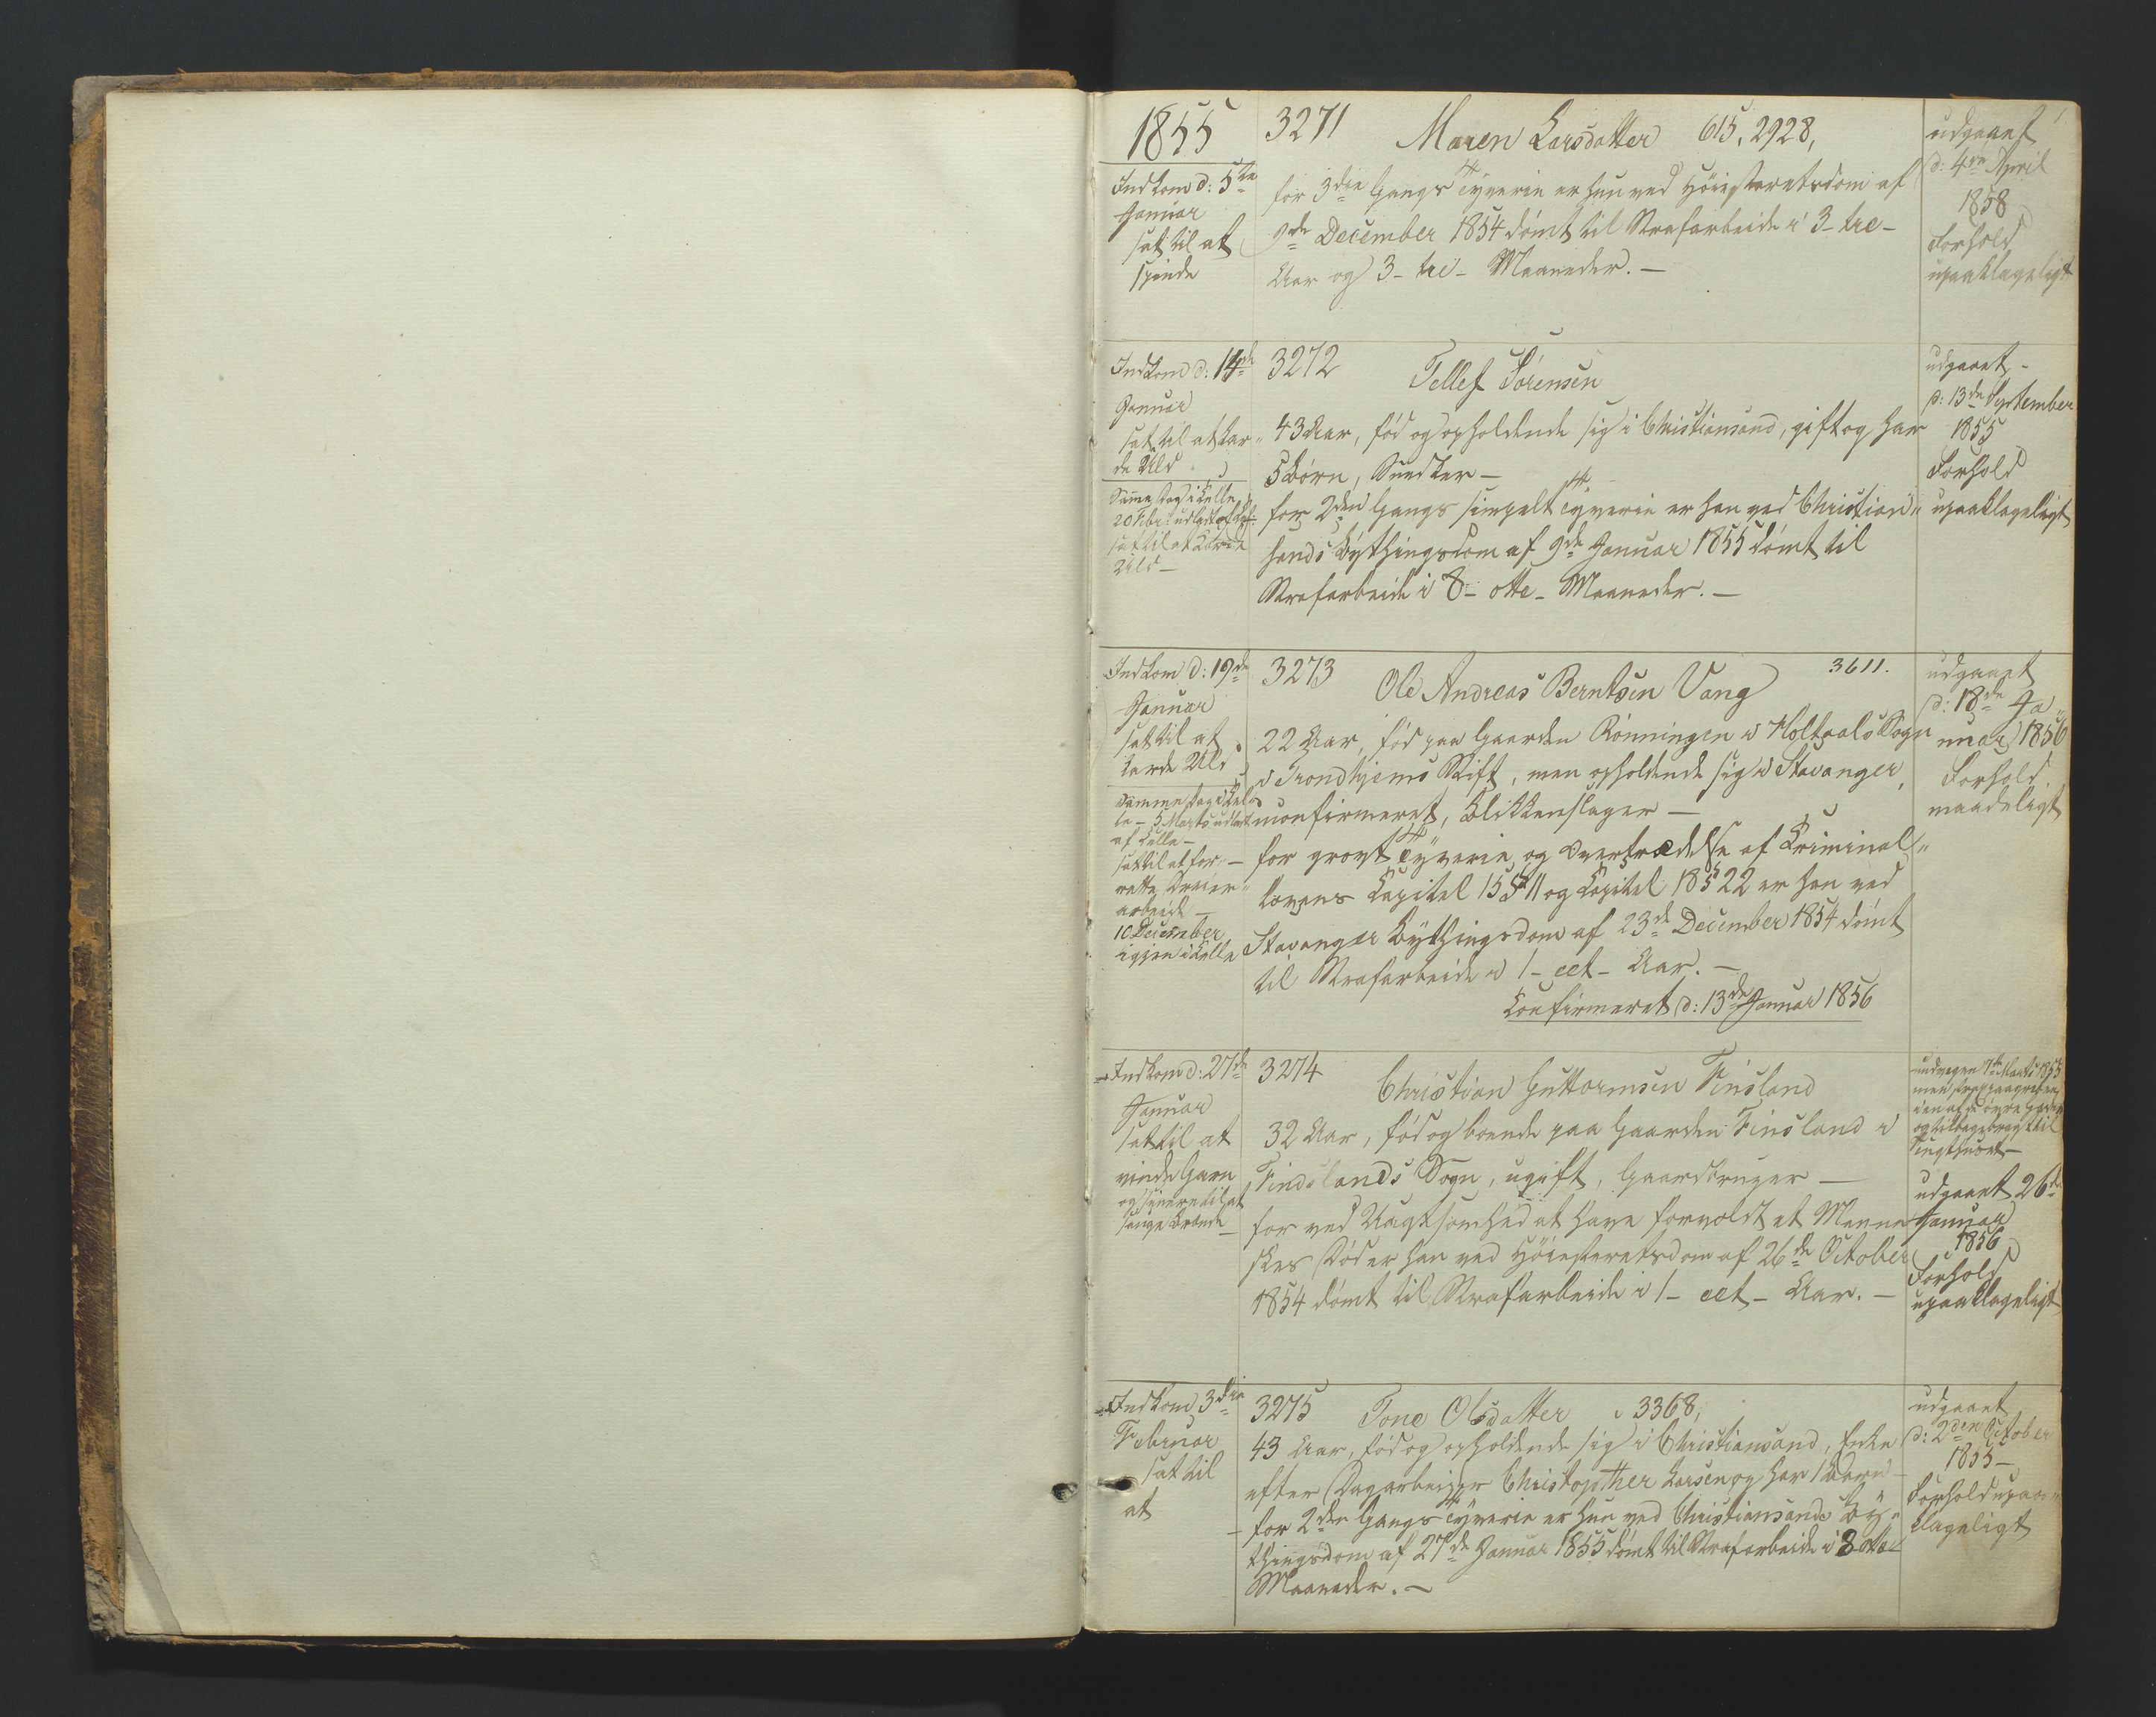 1855
Indkom d: 5te
Januar
sat til at
spinde
3271 Maren Larsdatter 615, 2928,
for 3die Gangs Tyverie er hun ved Høiesteretsdom af
9de December 1854 dømt til Strafarbeide i 3 - tre -
Aar og 3 - tre - Maaneder. -
udgaaet
d: 4de April
1858
Forhold
upaaklageligt
Indkom d: 14de
Januar
sat til at kar-
de Uld
Samme Dag i Celle
20 Febr: udladt af Celle
sat til at karde
Uld -
3272 Tellef Sørensen
43 Aar, fød og opholdende sig i Christiansand, gift og har
5 Børn, Snedker -
for 2den Gangs simpelt Tyverie er han ved Christian-
sands Bythingsdom af 9de Januar 1855 dømt til
Strafarbeide i 8 - otte - Maaneder. -
udgaaet -
d: 13de September
1855
Forhold
upaaklageligt
Indkom d: 19de
Januar
sat til at
karde Uld
Samme Dag i Cel-
le - 5 Marts udladt
af Celle -
sat til at for-
rette Dreier-
arbeide -
10 December
igjen i Celle
3273 Ole Andreas Berntsen Vang 3611.
22 Aar, fød paa Gaarden Rønningen i Holtaals Sogn
i Trondhjems Stift, men opholdende sig i Stavanger,
uconfirmeret, Blikkenslager -
for grovt Tyverie og Overtrædelse af Criminal-
lovens Capitel 15 § 11 og Capitel 18 § 22 er han ved
Stavanger Bythingsdom af 23de December 1854 dømt
til Strafarbeide i 1 - eet - Aar. -
Confirmeret d: 13de Januar 1856
udgaaet
d: 18de Ja-
nuar 1856
Forhold
maadeligt
Indkom d: 27de
Januar
sat til at
vinde Garn
og senere til at
sauge Brænde -
3274 Christian Guttormsen Finsland
32 Aar, fød og boende paa Gaarden Finsland i
Findslands Sogn, ugift, Gaardbruger -
for ved Uagtsomhed at have forvoldt et Menne
skes Død er han ved Høiesteretsdom af 26de October
1854 dømt til Strafarbeide i 1 - eet - Aar. -
undvegen 7de Marts 1855
men strax paagreben
og tilbagebragt til
Tugthuset -
udgaaet 26de
Januar
1856
Forhold
upaaklageligt
Indkom 3die
Februar
sat til
at
3275 Tone Olsdatter 3368,
43 Aar, fød og opholdende sig i Christiansand, Enke
efter Dagarbeider Christopher Larsen og har 1 Barn -
for 2den Gangs Tyverie er hun ved Christiansands By-
thingsdom af 27de Januar 1855 dømt til Strafarbeide i 8 otte
Maaneder. -
udgaaet
d: 2den October
1855 -
Forhold upaa-
klageligt